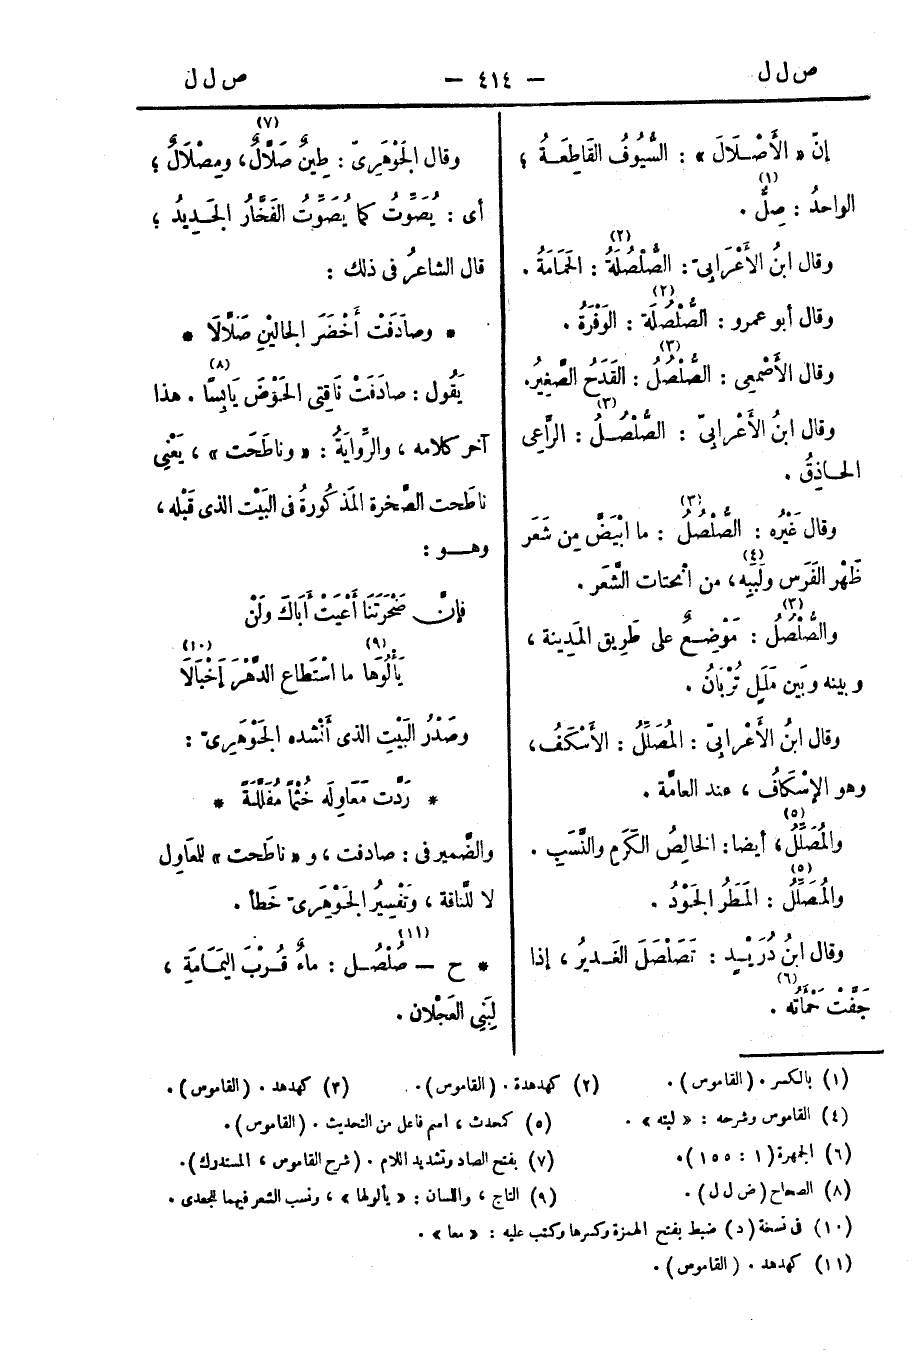 ص ل ل — ٤١٤ — ص ل ل
إنّ « الأَصْلَالَ » : السُّيُوفُ القَاطِعَةُ ؛
الواحدُ : صِلٌّ (١) .
وقال ابنُ الأَعْرَابِىّ : الصُّلْصُلَةُ (٢) : الحَمَامَةُ .
وقال أبو عمرو : الصُّلْصُلَة (٢) : الوَفْرَةُ .
وقال الأَصْمعِى : الصُّلْصُلُ (٣) : القَدَحُ الصَّغِيرُ.
وقال ابنُ الأَعْرابِىّ : الصُّلْصُلُ (٣) : الرَّاعِى
الحاذِقُ .
وقال غَيْرُه : الصُّلْصُلُ (٣) : ما ابْيَضَّ مِن شَعَر
ظَهْر الفَرَس ولَبَبِه (٤) ، من انْحتات الشَّعَر .
والصُّلْصُلُ (٣) : مَوْضِعٌ على طَرِيق المَدِينة ،
وبينه وبَين مَلَلٍ تُرْبَانُ .
وقال ابنُ الأَعْرابِىّ : المُصَلِّلُ : الأَسْكَفُ ،
وهو الإسْكَافُ ، عند العامَّة .
والمُصَلِّلُ (٥) ، أيضا : الخالِصُ الكَرَمِ والنَّسَبِ .
والمُصَلِّلُ (٥) : المَطَرُ الجَوْدُ .
وقال ابنُ دُرَيْدٍ : تَصَلْصَلَ الغَدِيرُ ، إذا
جَفَّتْ حَمْأَتُه (٦) .
وقال الجَوْهَرِىّ : طِينٌ صَلَّالٌ (٧) ، ومِصْلَالٌ ؛
أى : يُصَوِّتُ كما يُصَوِّتُ الفَخَّارُ الجَدِيدُ ؛
قال الشاعرُ فى ذلك :
* وصادَفَتْ أَخْضَرَ الجالَيْنِ صَلَّالَا *
يَقُول : صادَفَتْ نَاقَتِى الحَوْضَ يَابِسًا (٨) . هذا
آخر كلامه ، والرِّوايَةُ : « وناطَحَت » ، يَعْنِى
ناطَحت الصَّخرة المَذكُورةُ فى البَيْت الذى قَبْله ،
وهو :
فإنَّ صَخْرَتَنَا أَعْيَتْ أَبَاكَ ولَنْ
يَأْلُوَهَا (٩) ما اسْتَطَاع الدَّهْرَ إخْبَالَا (١٠)
وصَدْرُ البَيْتِ الذى أَنْشده الجَوْهَرِىّ :
* رَدَّت مَعَاوِلَه خُثْمًا مُفَلَّلَةً *
والضَّمِير فى : صادفت ، و « ناطَحت » للمعَاوِل
لا للنَّاقة ، وتَفْسِيرُ الجَوْهَرِىّ خَطأ .
* ح — صُلْصُل (١١) : ماءٌ قُرْبَ اليَمَامَةِ ،
لِبَنِى العَجْلان .
(١) بالكسر . (القاموس) . (٢) كهدهدة . (القاموس) . (٣) كهدهد . (القاموس) .
(٤) القاموس وشرحه : « لبته » . (٥) كمحدث ، اسم فاعل من التحديث . (القاموس) .
(٦) الجمهرة (١ : ١٥٥) . (٧) بفتح الصاد وتشديد اللام . (شرح القاموس ، المستدرك) .
(٨) الصحاح (ص ل ل) . (٩) التاج ، واللسان : « يألوها » ، ونسب الشعر فيهما للجعدى .
(١٠) فى نسخة (د) ضبط بفتح الهمزة وكسرها وكتب عليه : « معا » .
(١١) كهدهد . (القاموس) .